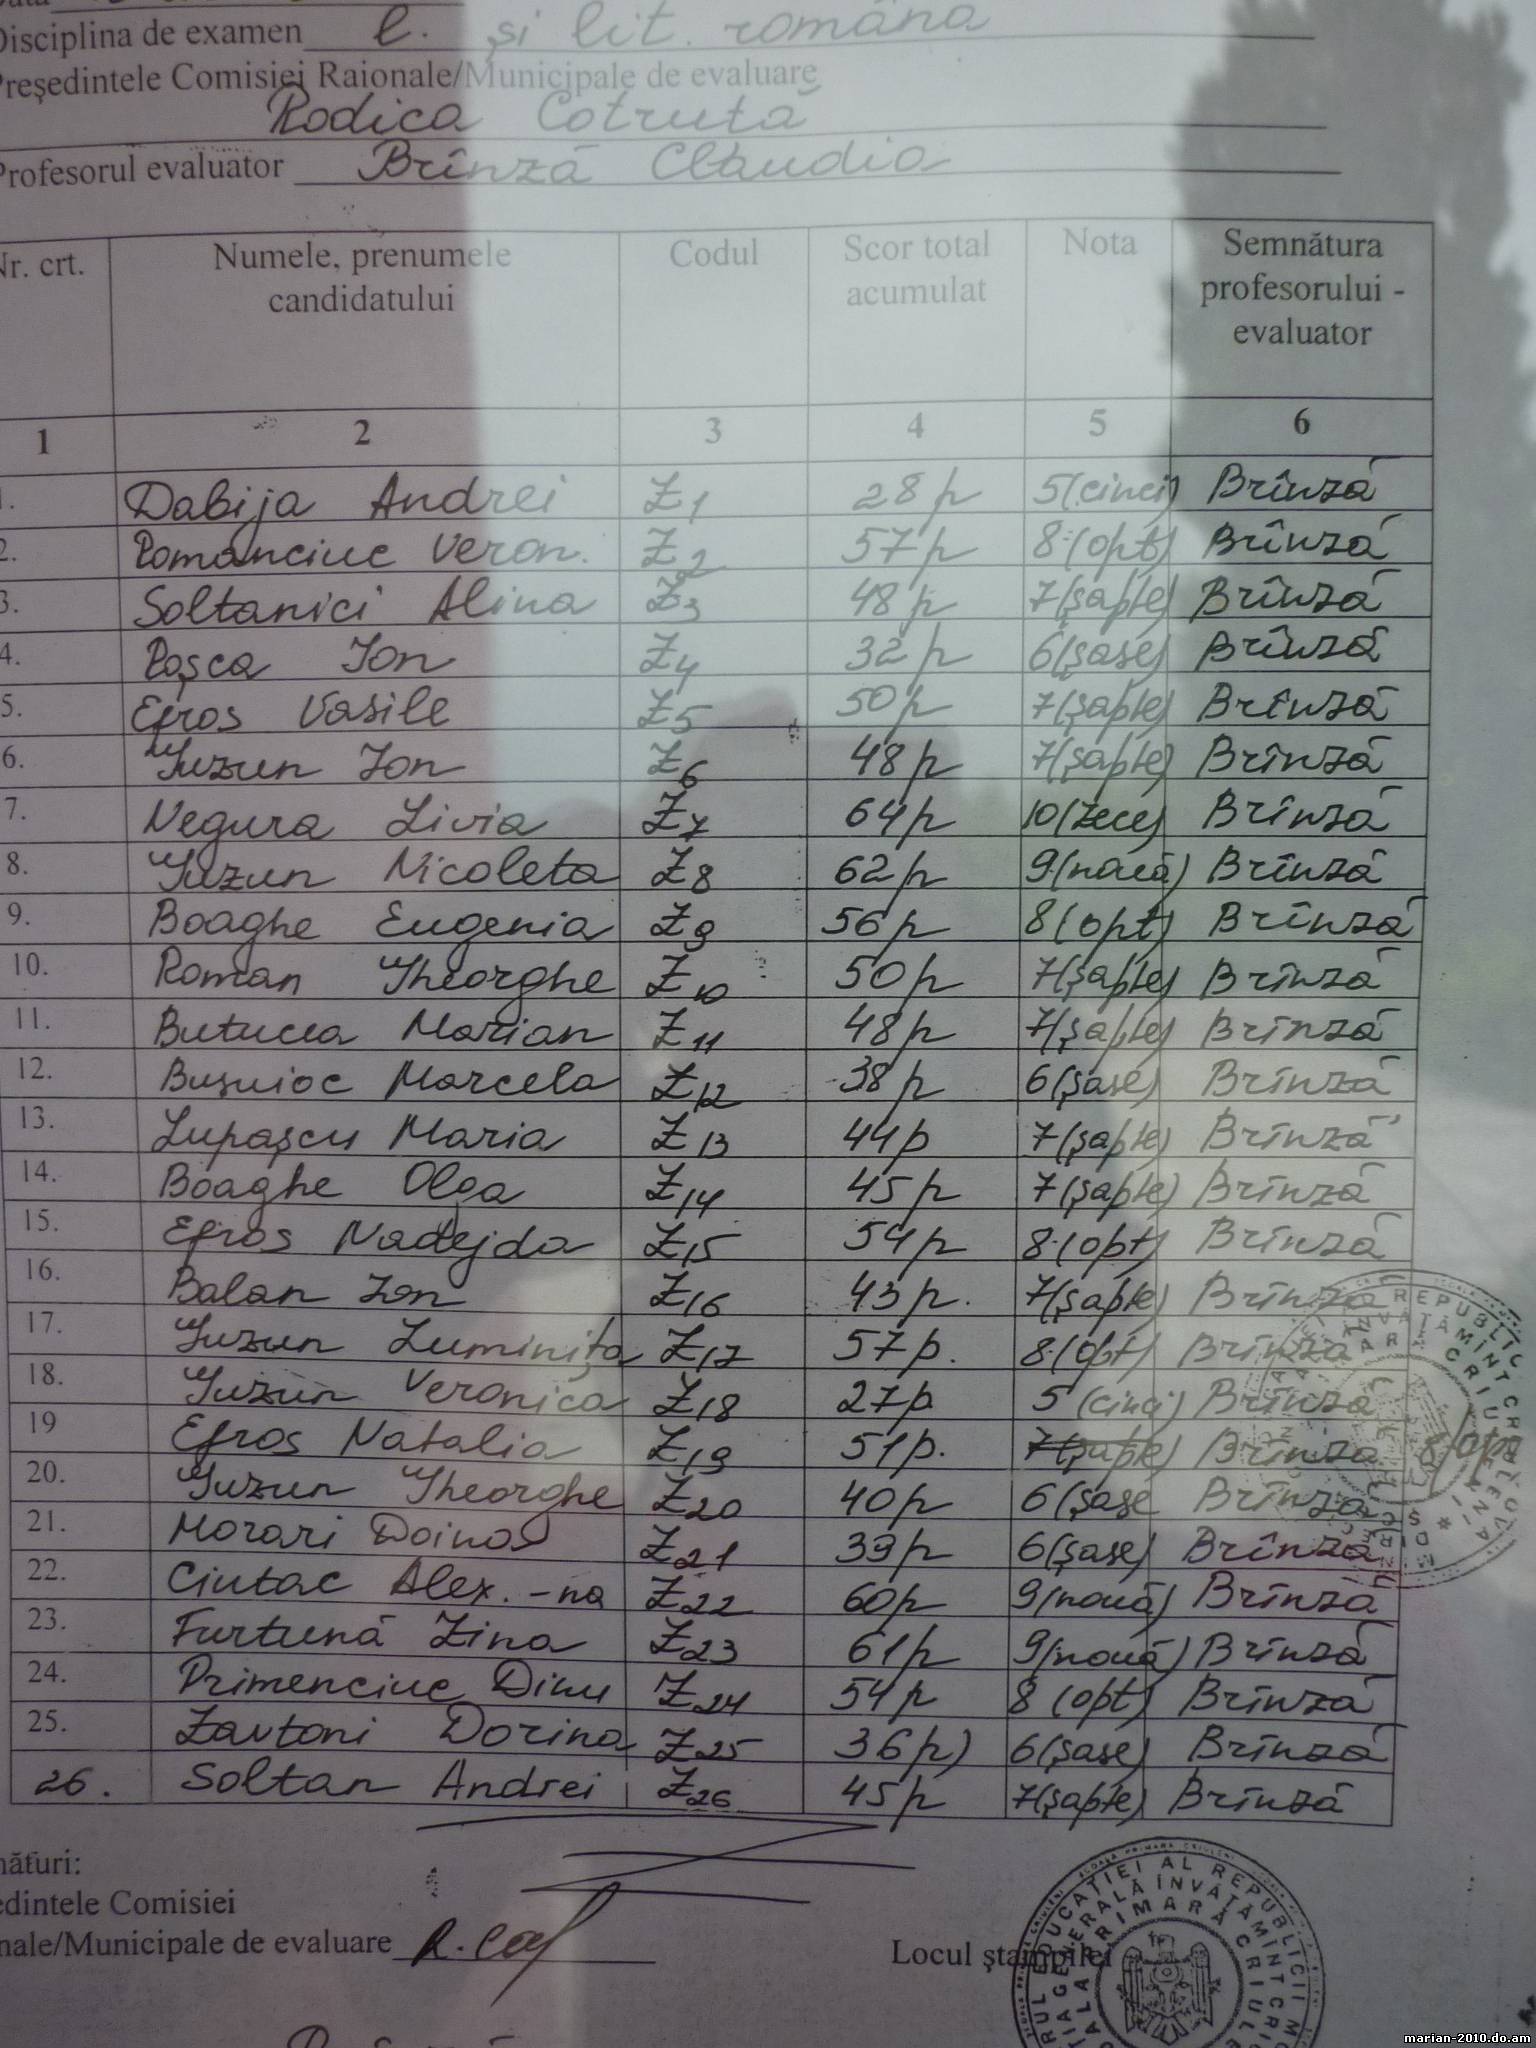 Data
Disciplina de examen l. și lit. română
Președintele Comisiei Raionale/Municipale de evaluare
Rodica Cotruță
Profesorul evaluator Brînză Claudia
Nr. crt. Numele, prenumele candidatului Codul Scor total acumulat Nota Semnătura profesorului - evaluator
1 2 3 4 5 6
1. Dabija Andrei Z1 28p 5(cinci) Brînză
2. Romanciuc Veron. Z2 57p 8(opt) Brînză
3. Soltanici Alina Z3 48p 7(șapte) Brînză
4. Roșca Ion Z4 32p 6(șase) Brînză
5. Efros Vasile Z5 50p 7(șapte) Brînză
6. Guzun Ion Z6 48p 7(șapte) Brînză
7. Negura Livia Z7 64p 10(zece) Brînză
8. Guzun Nicoleta Z8 62p 9(nouă) Brînză
9. Boaghe Eugenia Z9 56p 8(opt) Brînză
10. Roman Gheorghe Z10 50p 7(șapte) Brînză
11. Butucea Marian Z11 48p 7(șapte) Brînză
12. Bușuioc Marcela Z12 38p 6(șase) Brînză
13. Lupașcu Maria Z13 44p 7(șapte) Brînză
14. Boaghe Olga Z14 45p 7(șapte) Brînză
15. Efros Nadejda Z15 54p 8(opt) Brînză
16. Balan Ion Z16 43p. 7(șapte) Brînză
17. Guzun Luminița Z17 57p. 8(opt) Brînză
18. Guzun Veronica Z18 27p 5(cinci) Brînză
19 Efros Natalia Z19 51p. 7(șapte) Brînză 8(opt
20. Guzun Gheorghe Z20 40p 6(șase Brînză
21. Morari Doina Z21 39p 6(șase) Brînză
22. Ciutac Alex.-na Z22 60p 9(nouă) Brînză
23. Furtună Zina Z23 61p 9(nouă) Brînză
24. Primenciuc Dinu Z24 54p 8(opt) Brînză
25. Zavtoni Dorina Z25 36p) 6(șase) Brînză
26. Soltan Andrei Z26 45p 7(șapte) Brînză
nături:
edintele Comisiei
nale/Municipale de evaluare
Locul ștampilei
marian-2010.do.am